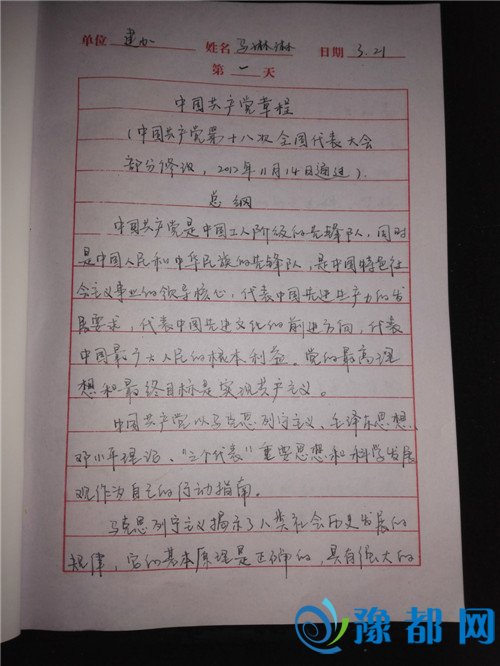 单位 建办 姓名 马琳琳 日期 3.21
第 一 天
中国共产党章程
(中国共产党第十八次全国代表大会
部分修改，2012年11月14日通过).
总纲
中国共产党是中国工人阶级的先锋队，同时
是中国人民和中华民族的先锋队，是中国特色社
会主义事业的领导核心，代表中国先进生产力的发
展要求，代表中国先进文化的前进方向，代表
中国最广大人民的根本利益。党的最高理
想和最终目标是实现共产主义。
中国共产党以马克思列宁主义、毛泽东思想、
邓小平理论、"三个代表"重要思想和科学发展
观作为自己的行动指南。
马克思列宁主义揭示了人类社会历史发展的
规律，它的基本原理是正确的，具有强大的
豫都网